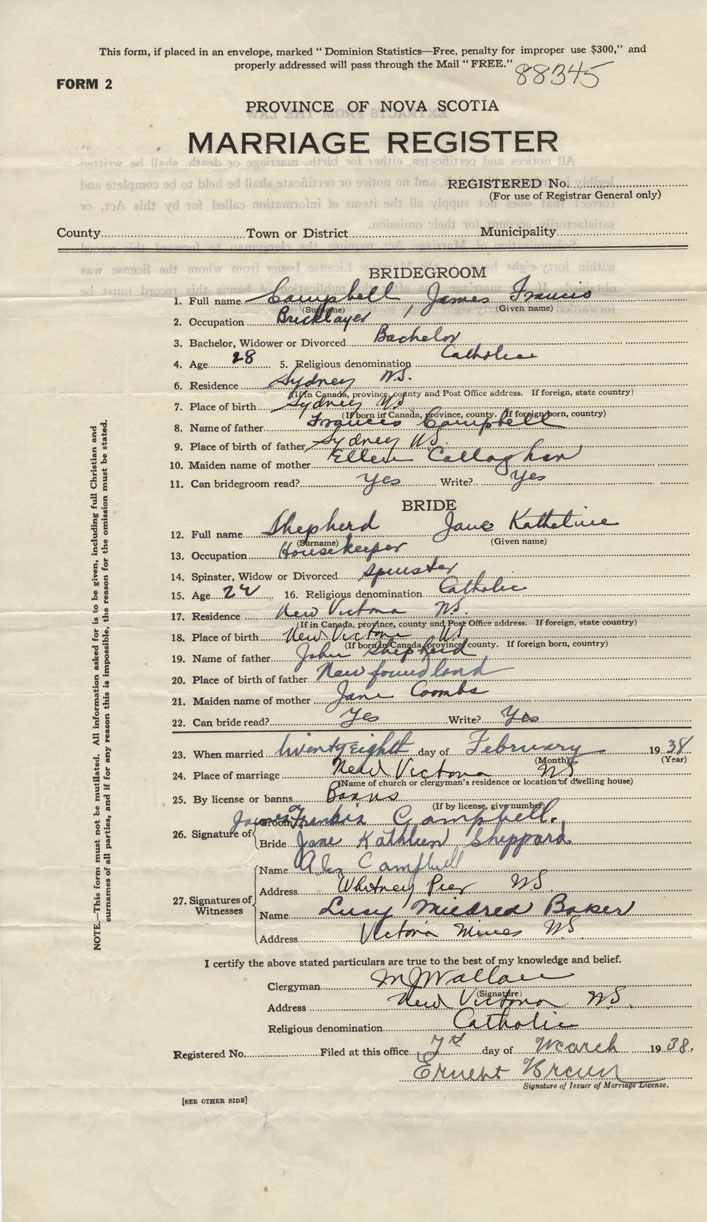 This form, if placed in an envelope, marked "Dominion Statistics—Free, penalty for improper use $300," and
properly addressed will pass through the Mail "FREE."
88345
FORM 2
PROVINCE OF NOVA SCOTIA
MARRIAGE REGISTER
REGISTERED No.
(For use of Registrar General only)
County Town or District Municipality
BRIDEGROOM
1. Full name Campbell, James Francis
(Surname) (Given name)
2. Occupation Bricklayer
3. Bachelor, Widower or Divorced Bachelor
4. Age 28 5. Religious denomination Catholic
6. Residence Sydney N.S.
(If in Canada, province, county and Post Office address. If foreign, state country)
7. Place of birth Sydney NS
(If born in Canada, province, county. If foreign born, country)
8. Name of father Francis Campbell
9. Place of birth of father Sydney N.S.
10. Maiden name of mother Ellen Callaghan
11. Can bridegroom read? Yes Write? Yes
BRIDE
12. Full name Shepherd Jane Katheline
(Surname) (Given name)
13. Occupation Housekeeper
14. Spinster, Widow or Divorced Spinster
15. Age 22 16. Religious denomination Catholic
17. Residence New Victoria N.S.
(If in Canada, province, county and Post Office address. If foreign, state country)
18. Place of birth New Victoria N.S.
(If born in Canada, province, county. If foreign born, country)
19. Name of father John Shepherd
20. Place of birth of father Newfoundland
21. Maiden name of mother Jane Coombs
22. Can bride read? Yes Write? Yes
23. When married twenty eighth day of February 1938
(Month) (Year)
24. Place of marriage New Victoria NS
(Name of church or clergyman's residence or location of dwelling house)
25. By license or banns Banns
(If by license, give number)
26. Signature of { Groom James Francis Campbell.
Bride Jane Kathleen Sheppard
27. Signatures of Witnesses { Name Alex Campbell
Address Whitney Pier N.S.
Name Lucy Mildred Baker
Address Victoria Mines N.S.
I certify the above stated particulars are true to the best of my knowledge and belief.
Clergyman M J Wallace
(Signature)
Address New Victoria N.S.
Religious denomination Catholic
Registered No. Filed at this office day of March 1938.
Ernest Brown
Signature of Issuer of Marriage License.
[SEE OTHER SIDE]
NOTE.—This form must not be mutilated. All information asked for is to be given, including full Christian and
surnames of all parties, and if for any reason this is impossible, the reason for the omission must be stated.